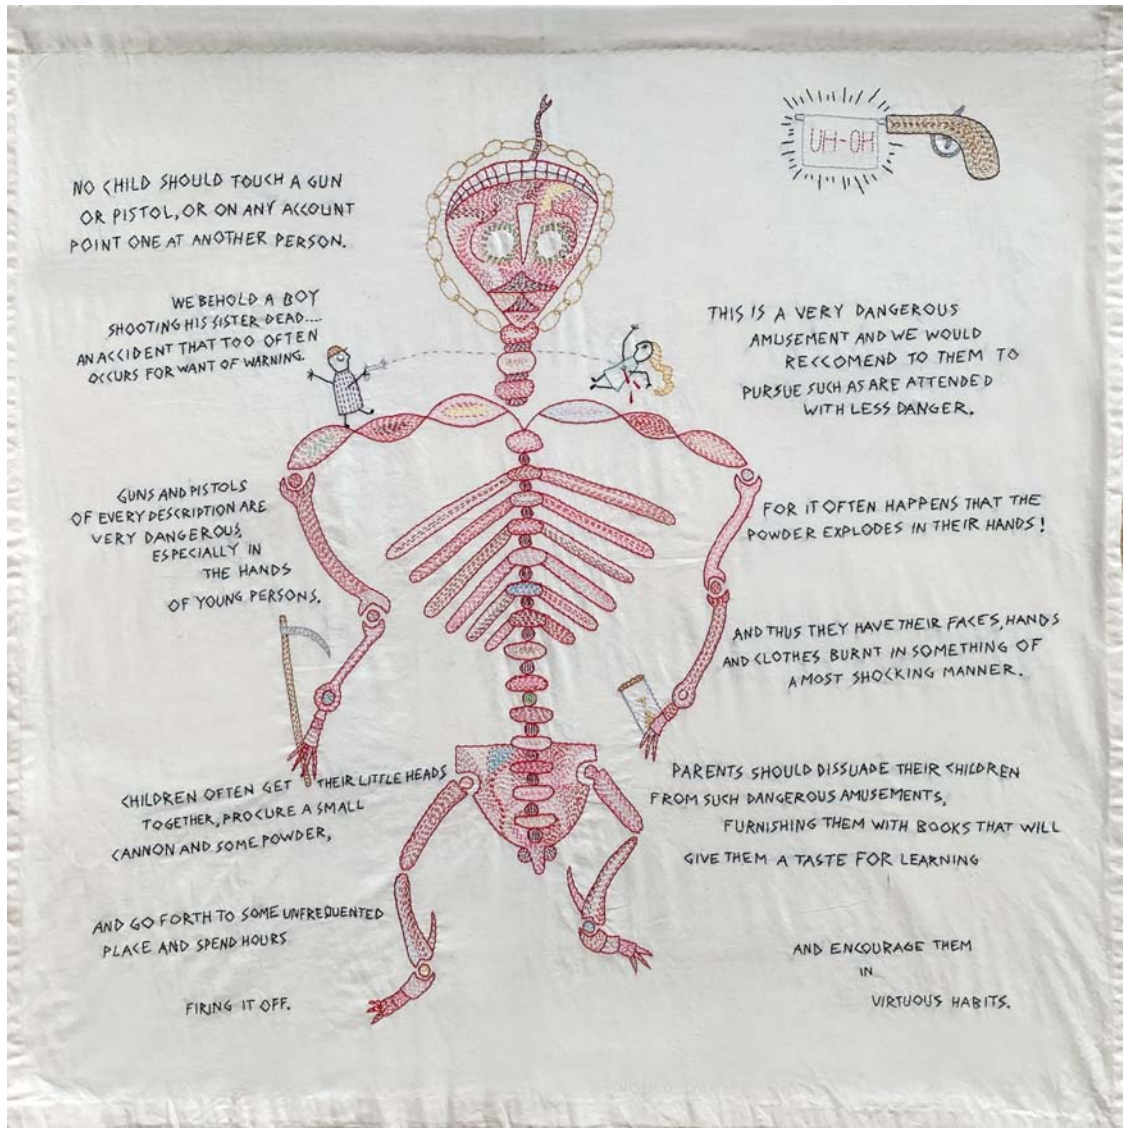 UH-OH
NO CHILD SHOULD TOUCH A GUN
OR PISTOL, OR ON ANY ACCOUNT
POINT ONE AT ANOTHER PERSON.
WE BEHOLD A BOY
SHOOTING HIS SISTER DEAD....
AN ACCIDENT THAT TOO OFTEN
OCCURS FOR WANT OF WARNING.
GUNS AND PISTOLS
OF EVERY DESCRIPTION ARE
VERY DANGEROUS,
ESPECIALLY IN
THE HANDS
OF YOUNG PERSONS.
CHILDREN OFTEN GET THEIR LITTLE HEADS
TOGETHER, PROCURE A SMALL
CANNON AND SOME POWDER,
AND GO FORTH TO SOME UNFREQUENTED
PLACE AND SPEND HOURS
FIRING IT OFF.
THIS IS A VERY DANGEROUS
AMUSEMENT AND WE WOULD
RECCOMEND TO THEM TO
PURSUE SUCH AS ARE ATTENDED
WITH LESS DANGER.
FOR IT OFTEN HAPPENS THAT THE
POWDER EXPLODES IN THEIR HANDS!
AND THUS THEY HAVE THEIR FACES, HANDS
AND CLOTHES BURNT IN SOMETHING OF
A MOST SHOCKING MANNER.
PARENTS SHOULD DISSUADE THEIR CHILDREN
FROM SUCH DANGEROUS AMUSEMENTS,
FURNISHING THEM WITH BOOKS THAT WILL
GIVE THEM A TASTE FOR LEARNING
AND ENCOURAGE THEM
IN
VIRTUOUS HABITS.